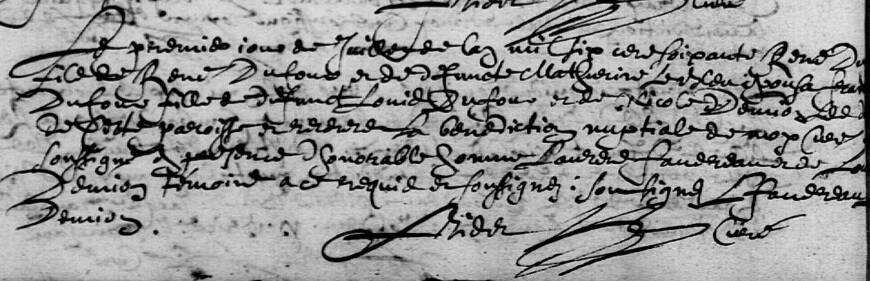 Le premier jour de Juillet de lan mil six cens soixante René Du
fils de René Dufour et de defuncte Matherine espousa
Dufour fille de defunct Louis Dufour et de Nicole Demion
de cette paroisse et receurent la benediction nuptiale de moy Curé
soussigné en presence d honorable homme Laurens Faudereau et de
Demion témoins a ce requis et soussignez : soussignez L Faudereau
Demion .
Bider Curé